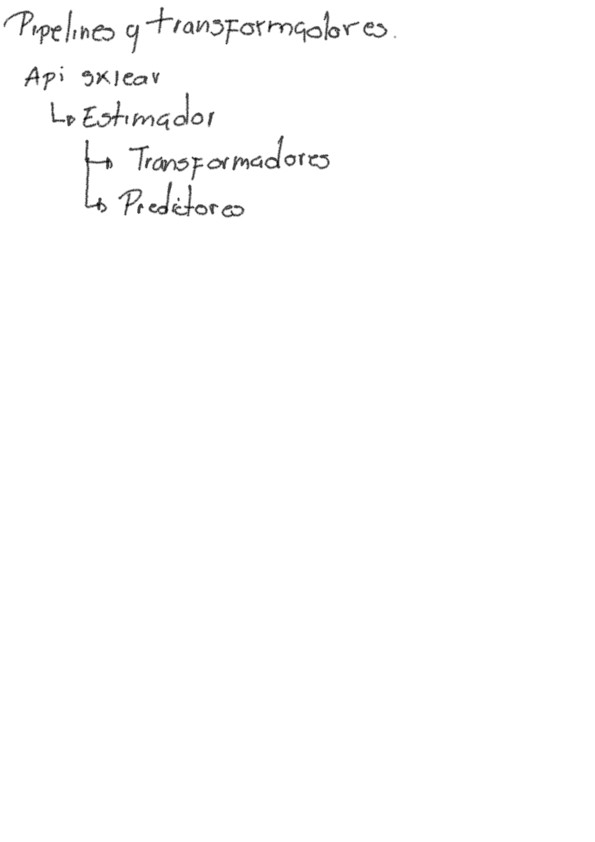 Pipelines y transformadores.
Api sklear
↳ Estimador
↳ Transformadores
↳ Predictores